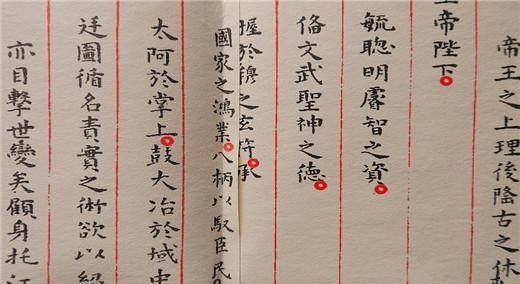 帝王之上理後隆古之休
帝陛下
毓聰明睿智之資
俻文武聖神之德
握於穆之玄符承
國家之鴻業八柄以馭臣民
太阿於掌上鼓大冶於域中
圖循名責實之術欲以
亦目擊世變矣顧身托